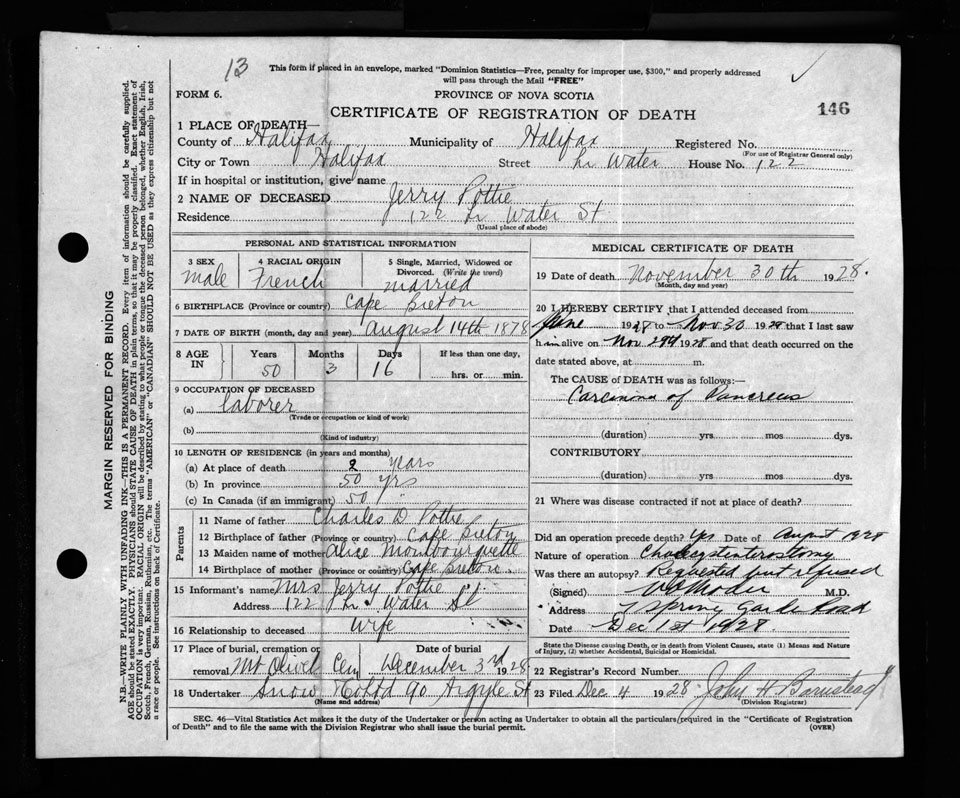 13
This form if placed in an envelope, marked "Dominion Statistics—Free, penalty for improper use, $300," and properly addressed
will pass through the Mail "FREE"
FORM 6.
PROVINCE OF NOVA SCOTIA
146
CERTIFICATE OF REGISTRATION OF DEATH
1 PLACE OF DEATH—
County of Halifax Municipality of Halifax Registered No.
(For use of Registrar General only)
City or Town Halifax Street Lr Water House No. 122
If in hospital or institution, give name
2 NAME OF DECEASED Jerry Pottie
Residence 122 Lr Water St
(Usual place of abode)
PERSONAL AND STATISTICAL INFORMATION
3 SEX male
4 RACIAL ORIGIN French
5 Single, Married, Widowed or
Divorced. (Write the word)
married
6 BIRTHPLACE (Province or country) Cape Breton
7 DATE OF BIRTH (month, day and year) August 14th 1878
8 AGE IN Years Months Days If less than one day,
50 3 16 hrs. or min.
9 OCCUPATION OF DECEASED
(a) laborer
(Trade or occupation or kind of work)
(b)
(Kind of industry)
10 LENGTH OF RESIDENCE (in years and months)
(a) At place of death 2 years
(b) In province 50 yrs
(c) In Canada (if an immigrant) 50 "
Parents
11 Name of father Charles D. Pottie
12 Birthplace of father (Province or country) Cape Breton
13 Maiden name of mother Alice Mombourquette
14 Birthplace of mother (Province or country) Cape Breton.
15 Informant's name Mrs Jerry Pottie
Address 122 Lr Water St
16 Relationship to deceased Wife
17 Place of burial, cremation or
removal Mt Olivet Cem
Date of burial
December 3rd 1928
18 Undertaker Snow & Co Ltd 90 Argyle St
(Name and address)
MEDICAL CERTIFICATE OF DEATH
19 Date of death November 30th 1928.
(Month, day and year)
20 I HEREBY CERTIFY that I attended deceased from
June 1928 to Nov 30 1928 that I last saw
him alive on Nov 29th 1928 and that death occurred on the
date stated above, at m.
The CAUSE of DEATH was as follows:—
Carcinoma of Pancreas
(duration) yrs mos dys.
CONTRIBUTORY
(duration) yrs. mos dys.
21 Where was disease contracted if not at place of death?
Did an operation precede death? Yes Date of August 1928
Nature of operation Cholecystenterostomy
Was there an autopsy? Requested but refused
(Signed) M.D.
Address 7 Spring Garden Road
Date Dec 1st 1928.
State the Disease causing Death, or in death from Violent Causes, state (1) Means and Nature
of Injury, (2) whether Accidental, Suicidal or Homicidal.
22 Registrar's Record Number
23 Filed Dec 4 1928 John H Barnstead
(Division Registrar)
SEC. 46—Vital Statistics Act makes it the duty of the Undertaker or person acting as Undertaker to obtain all the particulars required in the "Certificate of Registration
of Death" and to file the same with the Division Registrar who shall issue the burial permit.
(OVER)
MARGIN RESERVED FOR BINDING
N.B.—WRITE PLAINLY WITH UNFADING INK—THIS IS A PERMANENT RECORD. Every item of information should be carefully supplied.
AGE should be stated EXACTLY. PHYSICIANS should STATE CAUSE OF DEATH in plain terms, so that it may be properly classified. Exact statement of
OCCUPATION is very important. RACIAL ORIGIN will be described by stating to what people or tongue the deceased person belonged, whether English, Irish,
Scotch, French, German, Russian, Ruthenian, etc. The terms "AMERICAN" or "CANADIAN" SHOULD NOT BE USED as they express citizenship but not
a race or people. See instructions on back of Certificate.